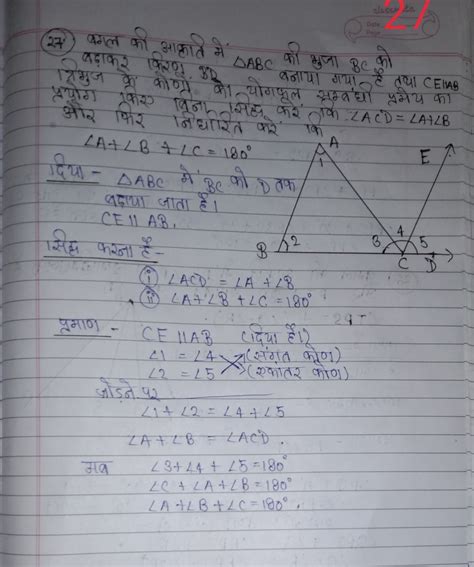 27
27 बगल की आकृति में ΔABC की भुजा BC को
बढ़ाकर किरण BD बनाया गया है तथा CE॥AB
त्रिभुज के कोणों का योगफल सम्बंधी प्रमेय का
प्रयोग किए बिना सिद्ध करें कि ∠ACD = ∠A+∠B
और फिर निर्धारित करें कि
∠A+∠B+∠C = 180°
दिया - ΔABC में BC को D तक
बढ़ाया जाता है।
CE॥AB.
सिद्ध करना है -
(i) ∠ACD = ∠A+∠B
(ii) ∠A+∠B+∠C = 180°
A
1
E
B
2
3
4
5
C
D
प्रमाण - CE॥AB (दिया है।)
∠1 = ∠4 (संगत कोण)
∠2 = ∠5 (एकांतर कोण)
जोड़ने पर
∠1+∠2 = ∠4+∠5
∠A+∠B = ∠ACD.
अब ∠3+∠4+∠5 = 180°
∠C+∠A+∠B = 180°
∠A+∠B+∠C = 180°.